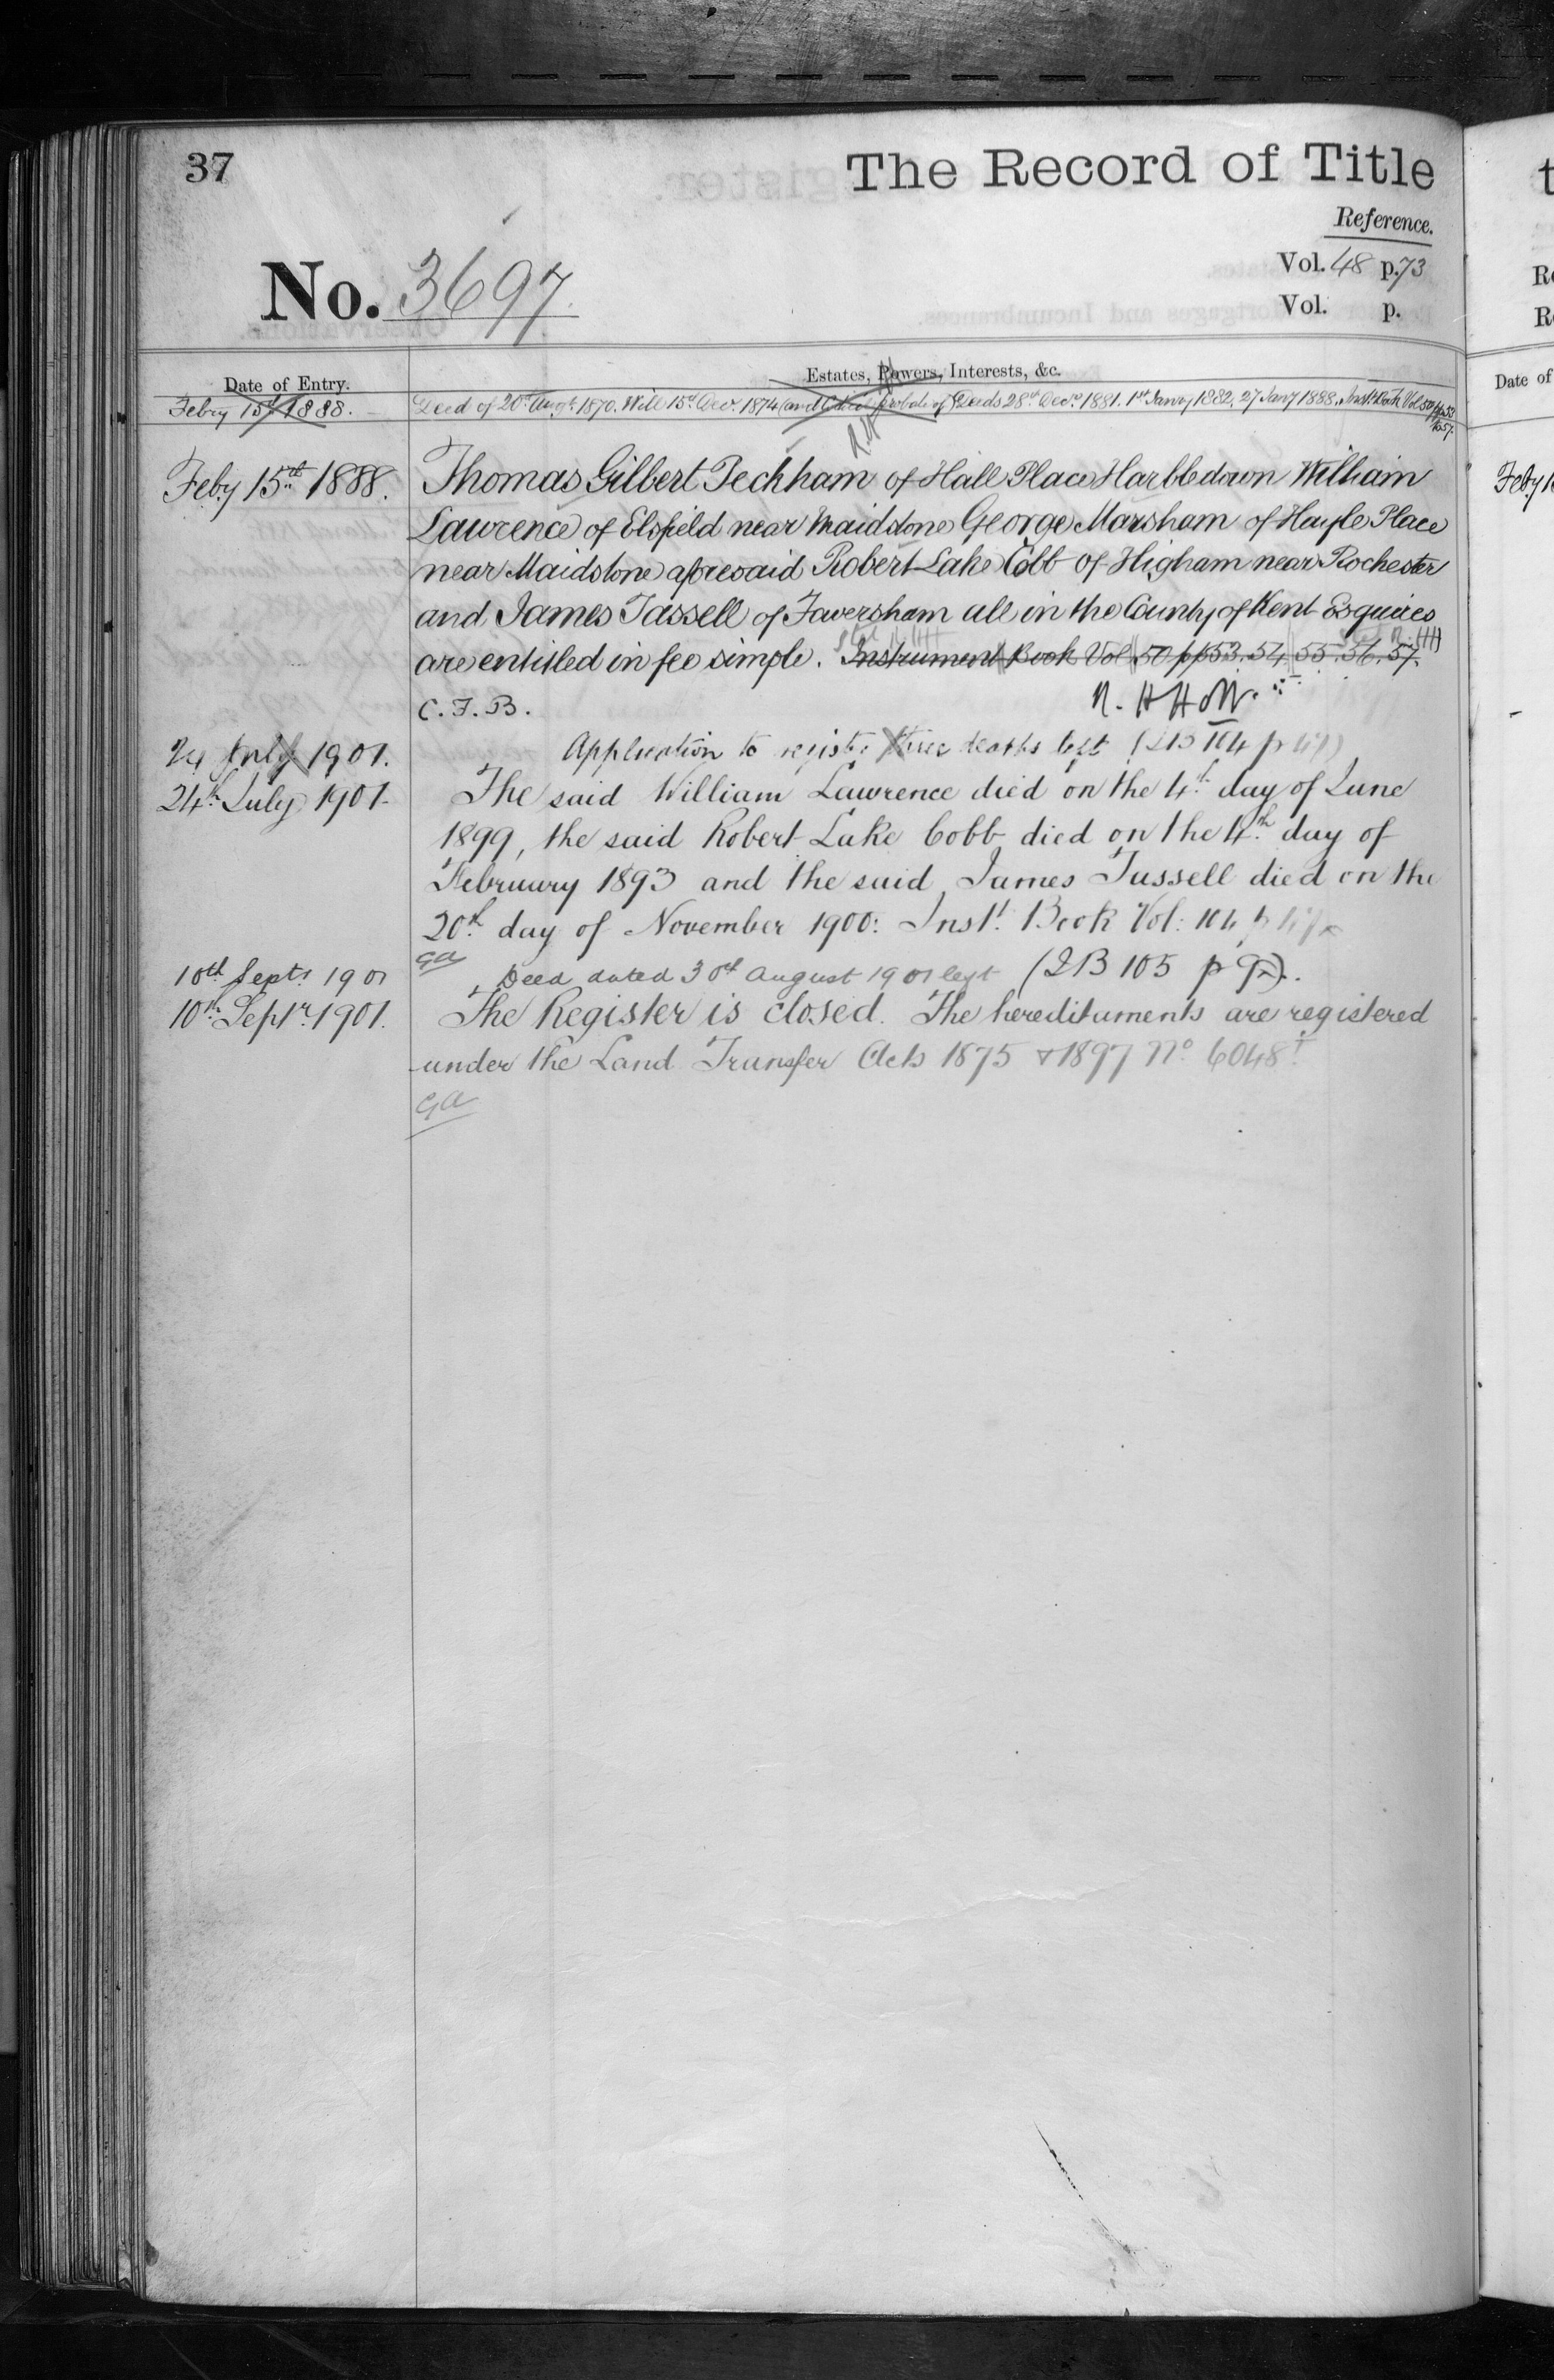 37
The Record of Title
Reference.
No. 3697.
Vol. 48 p. 73
Vol. p.
Date of Entry.
Estates, Powers, Interests, &c.
Febry 15th 1888.
Deed of 20th Augt. 1870. Will 15th Decr. 1874 (and probate of) Deeds 28th Decr. 1881. 1st Janry 1882. 27 Janry 1888. Inst. Book Vol 50 pp 53 to 57.
Feby 15th 1888.
Thomas Gilbert Peckham of Hall Place Harbledown William
Lawrence of Elsfield near Maidstone George Marsham of Hayle Place
near Maidstone aforesaid Robert Lake Cobb of Higham near Rochester
and James Tassell of Faversham all in the County of Kent Esquires
are entitled in fee simple. Instrument Book Vol 50 pp 53. 54. 55. 56. 57.
C.F.B.
24 July 1901.
Application to register three deaths left (IB 104 p
24th July 1901
The said William Lawrence died on the 4th day of June
1899, the said Robert Lake Cobb died on the 4th day of
February 1893 and the said James Tassell died on the
20th day of November 1900: Inst. Book Vol: 104 p
GA
10th Septr 1901
Deed dated 30th August 1901 left (IB 105 p
10th Septr. 1901.
The Register is closed. The hereditaments are registered
under the Land Transfer Acts 1875 & 1897 No 6048
GA
Date of
Feby 1